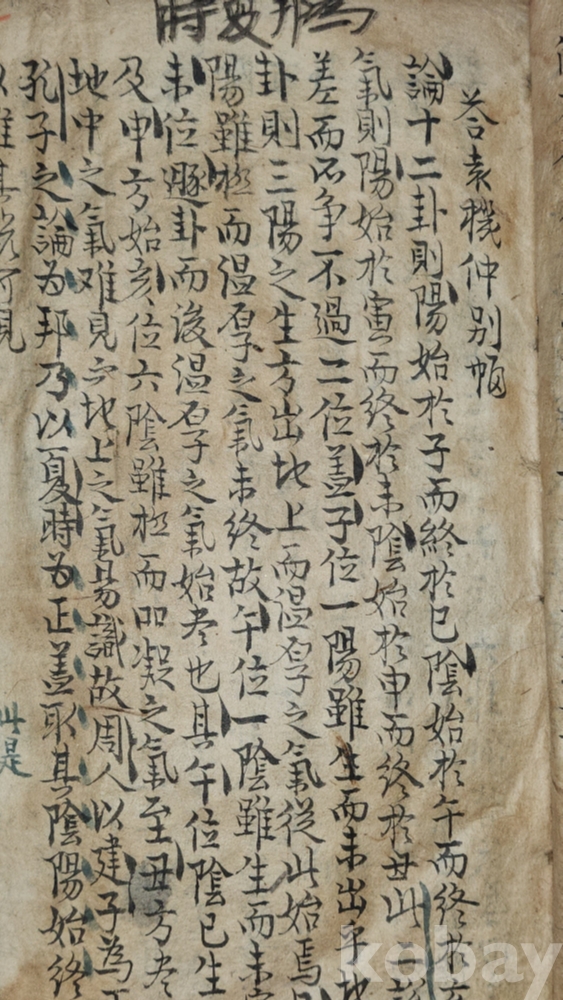 為邦夏時
答袁機仲別幅
論十二卦則陽始於子而終於巳陰始於午而終於
氣則陽始於寅而終於未陰始於申而終於丑此二
差而所争不過二位盖子位一陽雖生而未出乎地
卦則三陽之生方出地上而温厚之氣從此始焉
陽雖極而温厚之氣未終故午位一陰雖生而未
未位遯卦而後温厚之氣始尽也其午位陰已生
及申方始亥位六陰雖極而凝之氣至丑方尽
地中之氣难見而地上之氣易識故周人以建子為
孔子之論为邦乃以夏時为正盖取其陰陽始終
此是
kobay